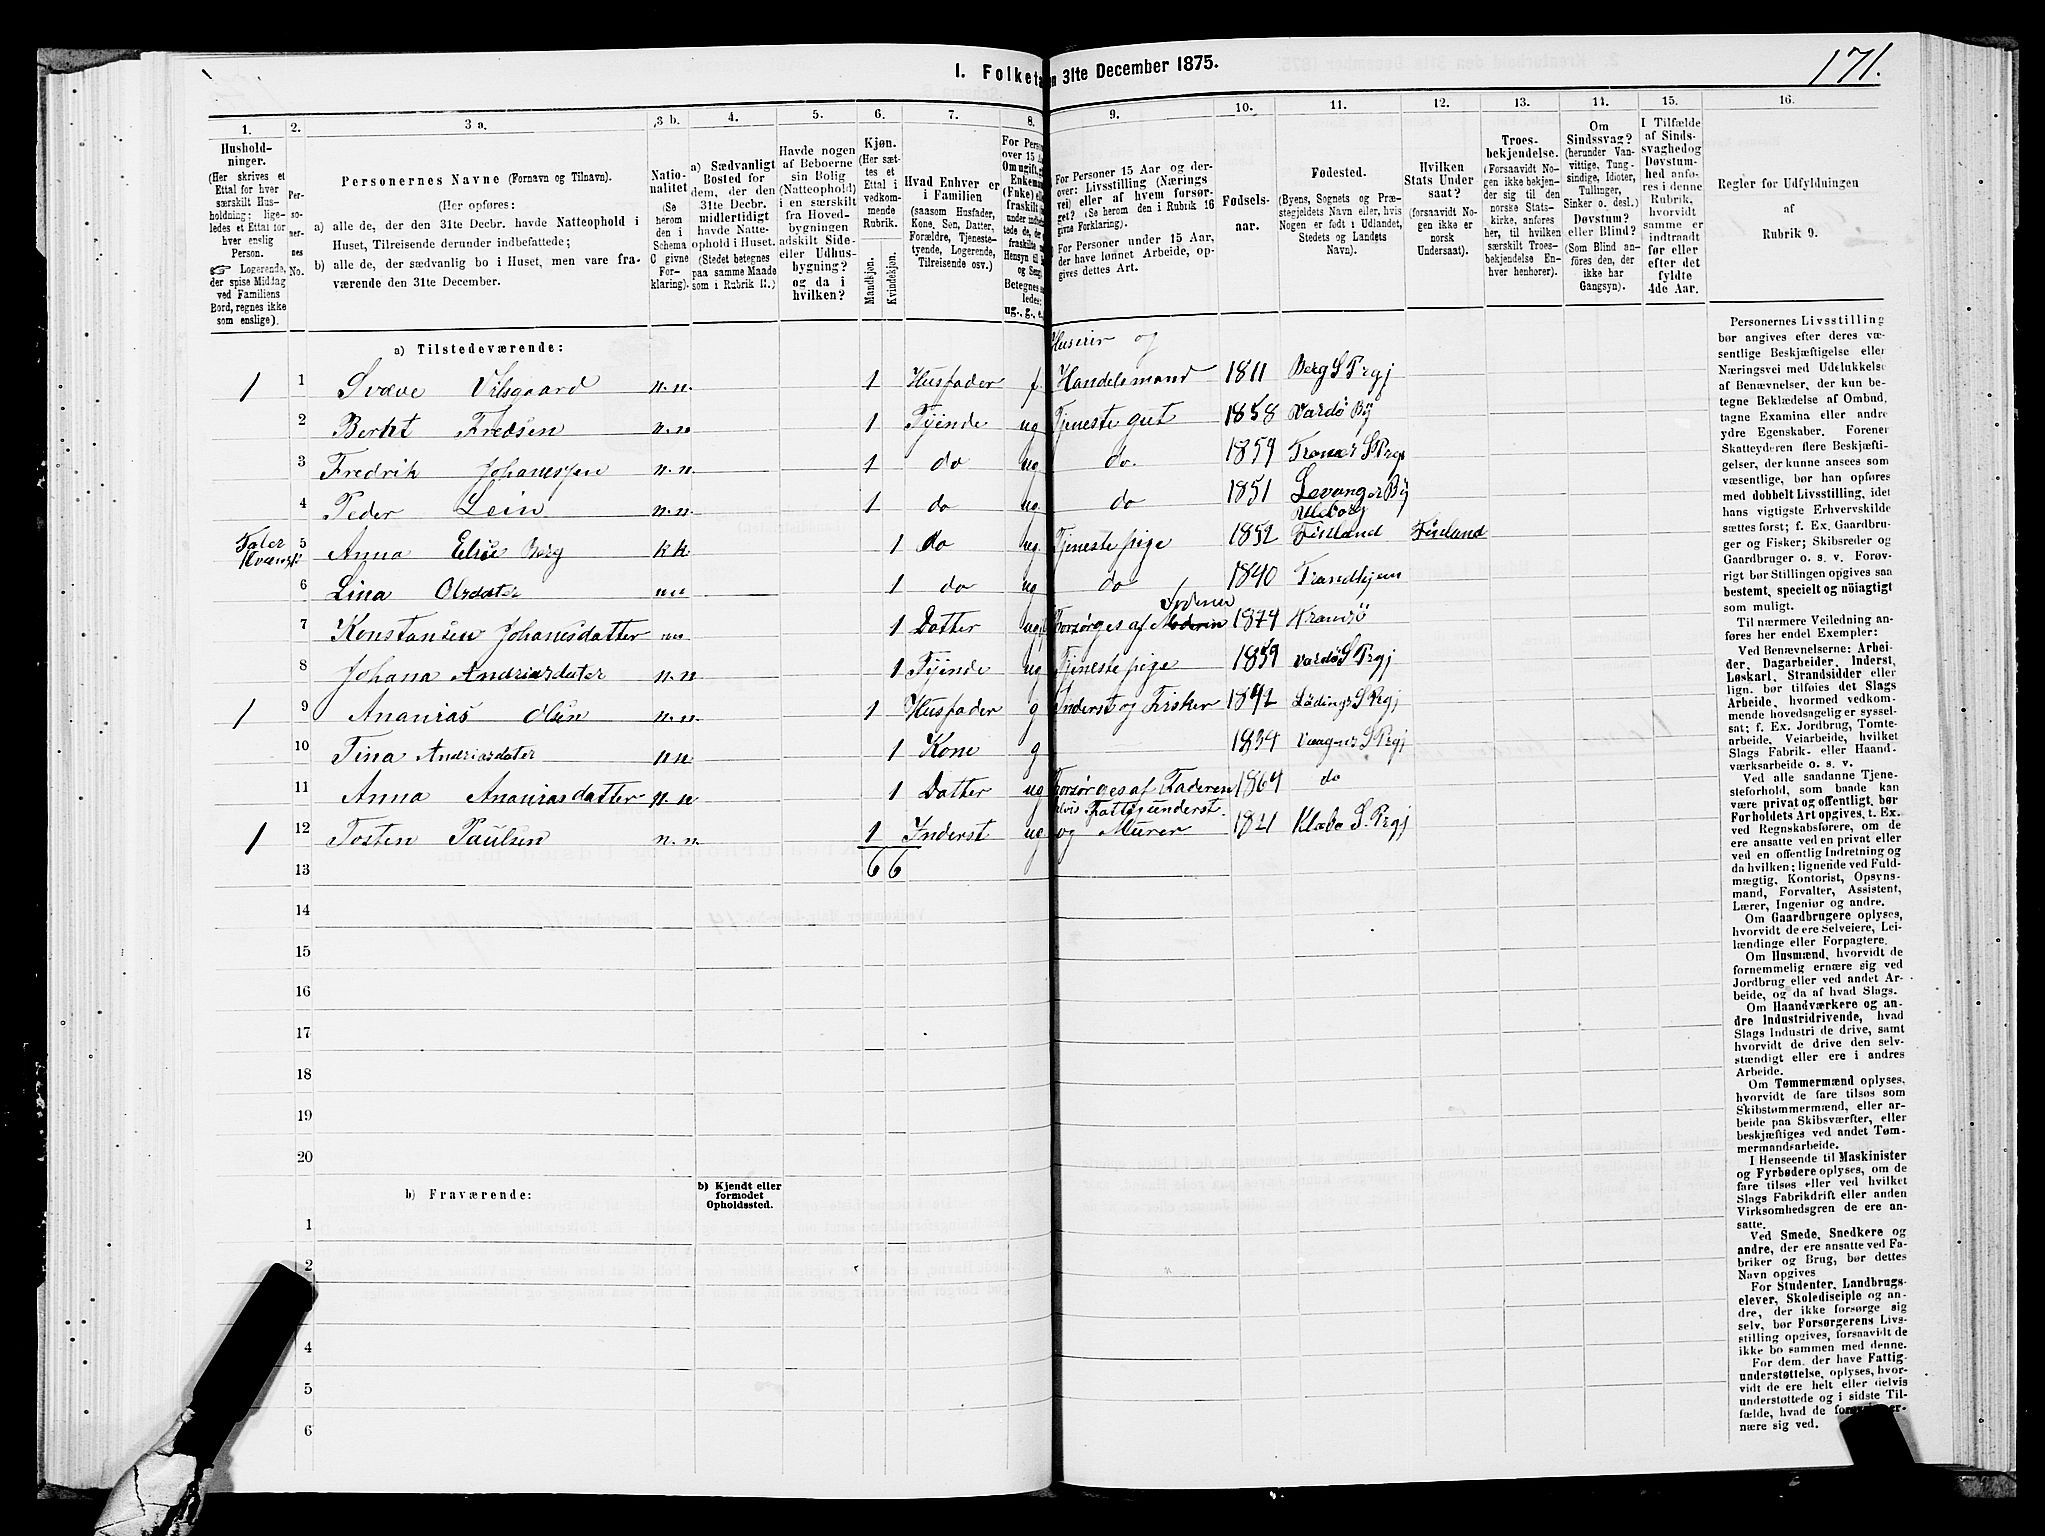 I. Folketa n 31te December 1875.
171.
1. 2. 3 a. 3 b. 4. 5. 6. 7. 8. 9. 10. 11. 12. 13. 14. 15. 16.
Hushold-
ninger.
(Her skrives et
Ettal for hver
særskilt Hus-
holdning; lige-
ledes et Ettal for
hver enslig
Person.
☞ Logerende,
der spise Middag
ved Familiens
Bord, regnes ikke
som enslige).
Per-
so-
ner-
nes
No.
Personernes Navne (Fornavn og Tilnavn).
(Her opføres:
a) alle de, der den 31te Decbr. havde Natteophold i
Huset, Tilreisende derunder indbefattede;
b) alle de, der sædvanlig bo i Huset, men vare fra-
værende den 31te December.
Natio-
nalitet
(Se
herom
den i
Schema
C givne
For-
klaring).
a) Sædvanligt
Bosted for
dem, der den
31te Decbr.
midlertidigt
havde Natte-
ophold i Huset.
(Stedet betegnes
paa samme Maade
som i Rubrik 11.)
Havde nogen
af Beboerne
sin Bolig
(Natteophold)
i en særskilt
fra Hoved-
bygningen
adskilt Side-
eller Udhus-
bygning?
og da i
hvilken?
Kjøn.
(Her sæt-
tes et
Ettal i
vedkom-
mende
Rubrik.
Mandkjøn.
Kvindekjøn.
Hvad Enhver er
i Familien
(saasom Husfader,
Kone, Søn, Datter,
Forældre, Tjeneste-
tyende, Logerende,
Tilreisende osv.)
For Perso
over 15 Aa
Om ugift, g
Enkem
(Fnke) el
fraskilt
Betegnes s
ledes:
ug., g., e,
For Personer 15 Aar og der-
over: Livsstilling (Nærings
vei) eller af hvem forsør-
get? (Se herom den i Rubrik 16
givne Forklaring).
For Personer under 15 Aar,
der have lønnet Arbeide, op-
gives dettes Art.
Fødsels-
aar.
Fødested.
(Byens, Sognets og Præ-
stegjeldets Navn eller, hvis
Nogen er født i Udlandet,
Stedets og Landets
Navn).
Hvilken
Stats Under
saat?
(forsaavidt No-
gen ikke er
norsk
Undersaat).
Troes-
bekjendelse.
(Forsaavidt No-
gen ikke bekjen-
der sig til den
norske Stats-
kirke, anføres
her, til hvilken
særskilt Troes-
bekjendelse En-
hver henhorer).
Om
Sindssvag?
(herunder Van-
vittige, Tung-
sindige, Idioter,
Tullinger,
Sinker o. desl.)
Døvstum?
eller Blind?
(Som Blind an-
føres den, der
ikke har
Gangsyn).
I Tilfælde
af Sinds-
svaghedog
Døvstum-
hed anfø-
res i denne
Rubrik,
hvorvidt
samme er
indtraadt
før eller
efter det
fyldte
4de Aar.
Regler for Udfyldningen
af
Rubrik 9.
a) Tilstedeværende:
Huserer og
1 1 Svæve Vilsgaard n.n. 1 Husfader f. Handelsmand 1811 Berg S Prgj
2 Berht Fredsen n.n 1 Tjende ug Tjeneste gut 1858 Vardö By
3 Fredrik Johannssen n.n 1 do ug do. 1859 S Prgj
4 Peder Lein n.n. 1 do ug do 1851 Levanger By
5 Anna Elise Berg k k 1 do ug. Tjeneste pige 1852 Finland Finland
6 Lina Olsdater nn 1 do ug do 1840 Trondhjem
Faderen
7 Konstansen Johanesdatter nn 1 Datter ug Forsørges af Moderen 1874 Tromsö
8 Johana Andriasdater n.n 1 Tjende ug Tjeneste pige 1859 Vardö S Prgj
1 9 Ananias Olsen n.n. 1 Husfader g Inderst og Fisker 1842 Lödings S Prgj
10 Tina Andriasdater n n 1 Kone g 1834 Vaagnes S Prgj
11 Anna Ananiasdatter n.n 1 Datter ug Forsørges af Faderen 1864 do
delvis Fattigunderst.
1 12 Tosten Paulsen n.n. 1 Inderst ug og Murer 1821 Klæbo S. Prgj
13 6 6
14
15
16
17
18
19
20
b) Fraværende:
b) Kjendt eller
formodet
Opholdssted.
1
2
4
5
6
Personernes Livsstilling
bør angives efter deres væ-
sentlige Beskjæftigelse eller
Næringsvei med Udelukkelse
af Benævnelser, der kun be-
tegne Beklædelse af Ombud,
tagne Examina eller andre
ydre Egenskaber. Forener
Skatteyderen flere Beskjæfti-
gelser, der kunne ansees som
væsentlige, bør han opføres
med dobbelt Livsstilling, idet
hans vigtigste Erhvervskilde
sættes først; f. Ex. Gaardbru-
ger og Fisker; Skibsreder og
Gaardbruger o. s. v. Forøv-
rigt bør Stillingen opgives saa
bestemt, specielt og nöiagtigt
som muligt.
Til nærmere Veiledning an-
føres her endel Exempler:
Ved Benævnelserne: Arbei-
der, Dagarbeider, Inderst,
Løskarl, Strandsidder eller
lign. bør tilføies det Slags
Arbeide, hvormed vedkom-
mende hovedsagelig er syssel-
sat; f. Ex. Jordbrug, Tomte-
arbeide, Veiarbeide, hvilket
Slags Fabrik- eller Haand-
værksarbeide o. s. v.
Ved alle saadanne Tjene-
steforhold, som baade kan
være privat og offentligt, bør
Forholdets Art opgives, t. Ex.
ved Regnskabsførere, om de
ere ansatte ved en privat eller
ved en offentlig Indretning og
da hvilken; lignende ved Fuld-
mægtig, Kontorist, Opsyns-
mand, Forvalter, Assistent,
Lærer, Ingeniør og andre.
Om Gaardbrugere oplyses,
hvorvidt de ere Selveiere, Lei-
lændinge eller Forpagtere.
Om Husmænd, hvorvidt de
fornemmelig ernære sig ved
Jordbrug eller ved andet Ar-
beide, og da af hvad Slags.
Om Haandværkere og an-
dre Industridrivende, hvad
Slags Industri de drive, samt
hvorvidt de drive den selv-
stændigt eller ere i andres
Arbeide.
Om Tømmermænd oplyses,
hvorvidt de fare tilsøs som
Skibstømmermænd, eller ar-
beide paa Skibsværfter, eller
beskjæftiges ved andet Tøm-
mermandsarbeide.
I Henseende til Maskinister
og Fyrbødere oplyses, om de
fare tilsøs eller ved hvilket
Slags Fabrikdrift eller anden
Virksomhedsgren de ere an-
satte.
Ved Smede, Snedkere og
andre, der ere ansatte ved Fa-
briker og Brug, bør dettes
Navn opgives
For Studenter, Landbrugs-
elever, Skoledisciple og an-
dre, der ikke forsørge sig
selv, bør Forsørgerens Livs-
stilling opgives, forsaavidt de
ikke bo sammen med denne.
For dem, der have Fattig-
understøttelse, oplyses, hvor-
vidt de ere helt eller delvis
understøttede og i sidste Til-
fælde, hvad de forøvrigt er-
nære sig ved.